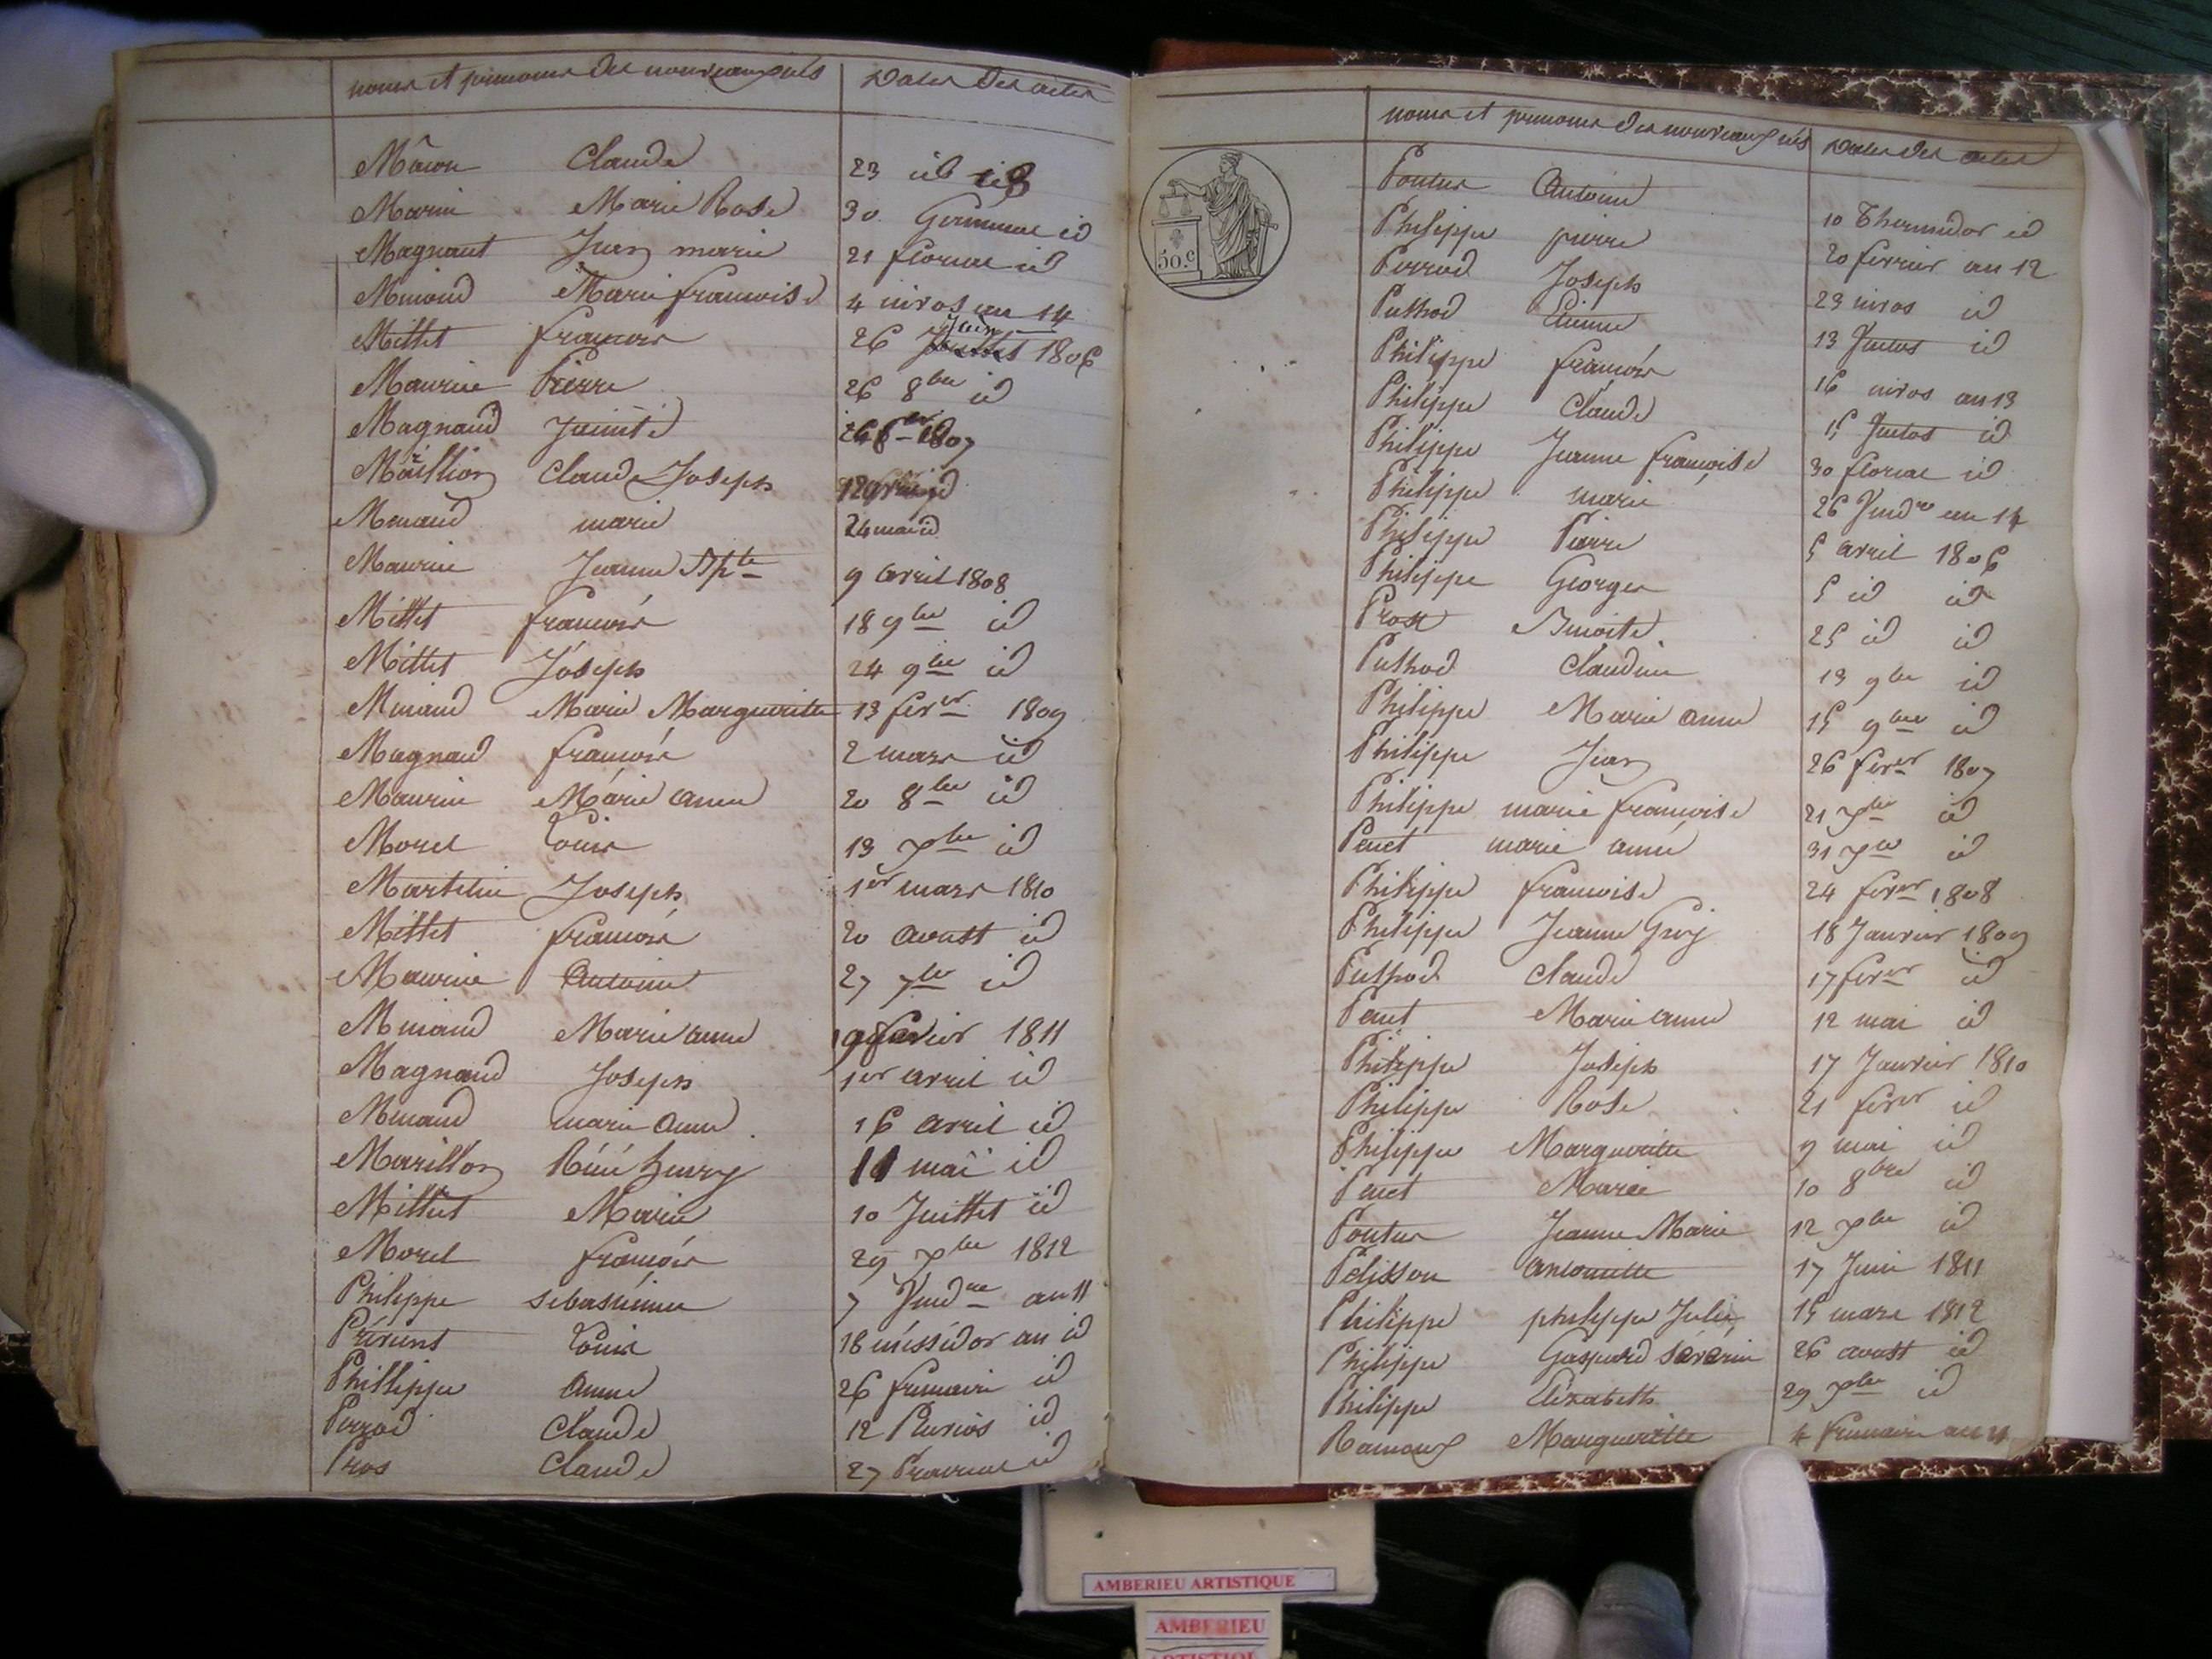 noms et prenoms des nouveaux nés Dates des actes
Mâcon Claude 23 id id
Marin Marie Rose 30 Germinal id
Magnaut Jean marie 21 floréal id
Minaud Marie francoise 4 nivos an 14
Millet francois 26 Juin 1806
Maurin Pierre 26 8bre id
Magnaud 1807
Maillion Claude Joseph id
Minaud marie 24 mai id
Maurin Jeanne Bpte 9 avril 1808
Millet francois 18 9bre id
Millet Joseph 24 9bre id
Minaud Marie Margueritte 13 fevrer 1809
Magnaud francois 2 mars id
Maurin Marie anne 20 8bre id
Morel Louis 13 Xbre id
Martelin Joseph 1er mars 1810
Millet francois 20 aoust id
Maurin Antoine 27 7bre id
Minaud Marie anne fevrier 1811
Magnaud Joseph 1er avril id
Minaud marie anne 16 avril id
Marillon Réné henry 11 mai id
Milliet Marie 10 Juillet id
Morel francois 29 Xbre 1812
Philippe sebastienne 7 Vendre an 11
Louis 18 méssidor an id
Phillippe anne 26 frimaire id
Perrod Claude 12 Pluvios id
Pros Claude 27 Prairial id
noms et prenoms des nouveaux nés Dates des actes
50.c
Pontus Antoine 10 Thermidor id
Philippe pierre 20 fevrier an 12
Perrod Joseph 23 nivos id
Puthod Etienne 13 Ventos id
Philippe francois 16 nivos an 13
Philippe Claude 15 Ventos id
Philippe Jeanne françoise 30 floréal id
Philippe marie 26 Vendre an 14
Philippe Pierre 5 avril 1806
Philippe Georges 5 id id
Prost Benoite 25 id id
Puthod Claudine 13 9bre id
Philippe Marie anne 15 9bre id
Philippe Jean 26 fevrer 1807
Philippe marie francoise 21 Xbre id
Penet marie anne 31 Xbre id
Philippe francoise 24 fevrer 1808
Philippe Jeanne 18 Janvier 1809
Puthod Claude 17 fevrer id
Penet Marie anne 12 mai id
Philippe Joseph 17 Janvier 1810
Philippe Rose 21 fevrer id
Philippe Margueritte 9 mai id
Penet Marie 10 8bre id
Pontus Jeanne Marie 12 Xbre id
Pelisson Antoinette 17 Juin 1811
Philippe philippe Julie 15 mars 1812
Philippe Gaspard séverin 26 aoust id
Philippe Elizabeth 29 Xbre id
Ramoux Margueritte 4 frimaire an 11
AMBERIEU ARTISTIQUE
AMBERIEU
ARTISTIQUE